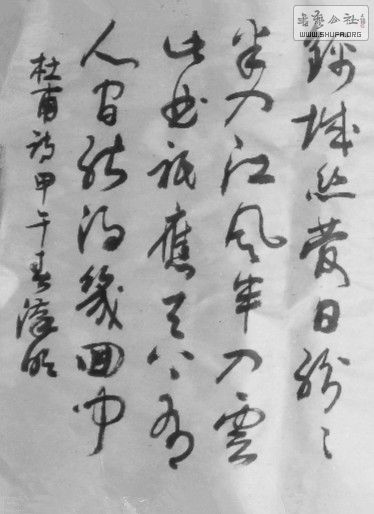 書藝公社
WWW.SHUFA.ORG
锦城丝管日纷〻
半入江风半入雲
此曲祇應天上有
人间能得幾回闻
杜甫诗甲午春